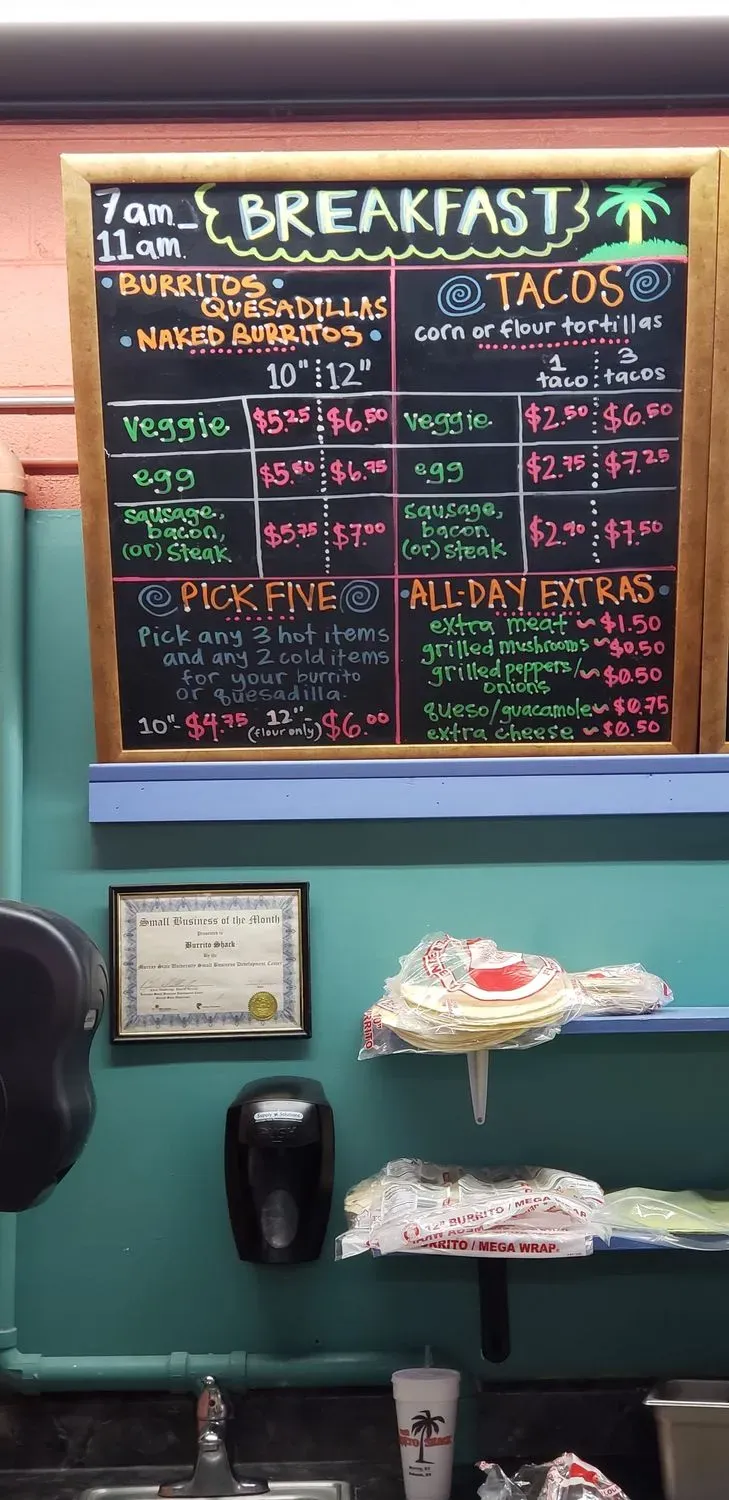 7am -
11am.
BREAKFAST
• BURRITOS •
QUESADILLAS
• NAKED BURRITOS •
10" 12"
veggie $5.25 $6.50
egg $5.50 $6.75
sausage,
bacon,
(or) steak $5.75 $7.00
TACOS
corn or flour tortillas
1 taco 3 tacos
veggie $2.50 $6.50
egg $2.75 $7.25
sausage,
bacon
(or) steak $2.90 $7.50
PICK FIVE
Pick any 3 hot items
and any 2 cold items
for your burrito
or quesadilla.
10"- $4.75 12"- (flour only) $6.00
• ALL-DAY EXTRAS •
extra meat ~ $1.50
grilled mushrooms ~ $0.50
grilled peppers/ ~ $0.50
onions
queso/guacamole ~ $0.75
extra cheese ~ $0.50
Small Business of the Month
Presented to
Burrito Shack
By the
Murray State University Small Business Development Center
Supply Solutions
PUSH
12" BURRITO / MEGA WRAP
BURRITO / MEGA WRAP
SHACK